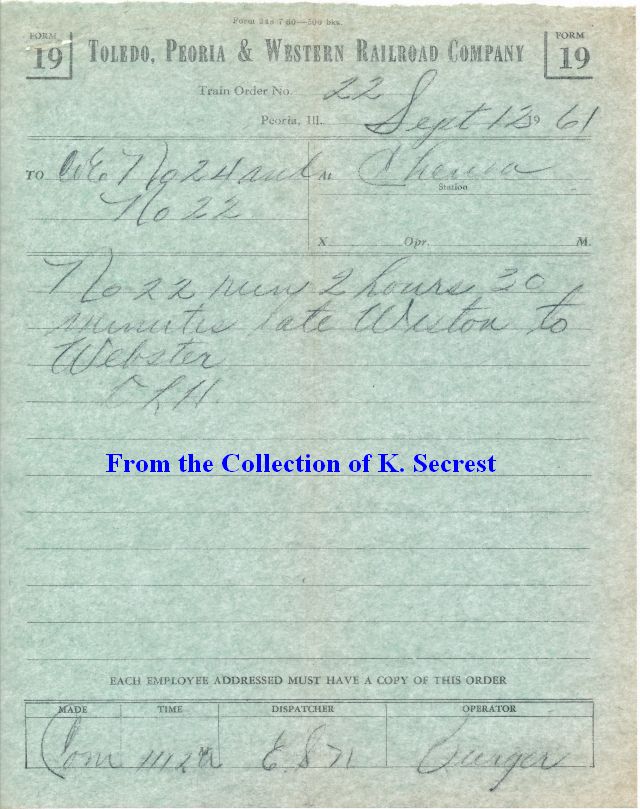 Form 248 7 60—500 bks.
FORM 19
TOLEDO, PEORIA & WESTERN RAILROAD COMPANY
FORM 19
Train Order No. 22
Peoria, Ill. Sept 12 19 61
TO C&E No 24 and At Chenoa
Station
No 22
X Opr. M.
No 22 run 2 hours 30
minutes late Weston to
Webster
From the Collection of K. Secrest
EACH EMPLOYEE ADDRESSED MUST HAVE A COPY OF THIS ORDER
MADE TIME DISPATCHER OPERATOR
Com Burger